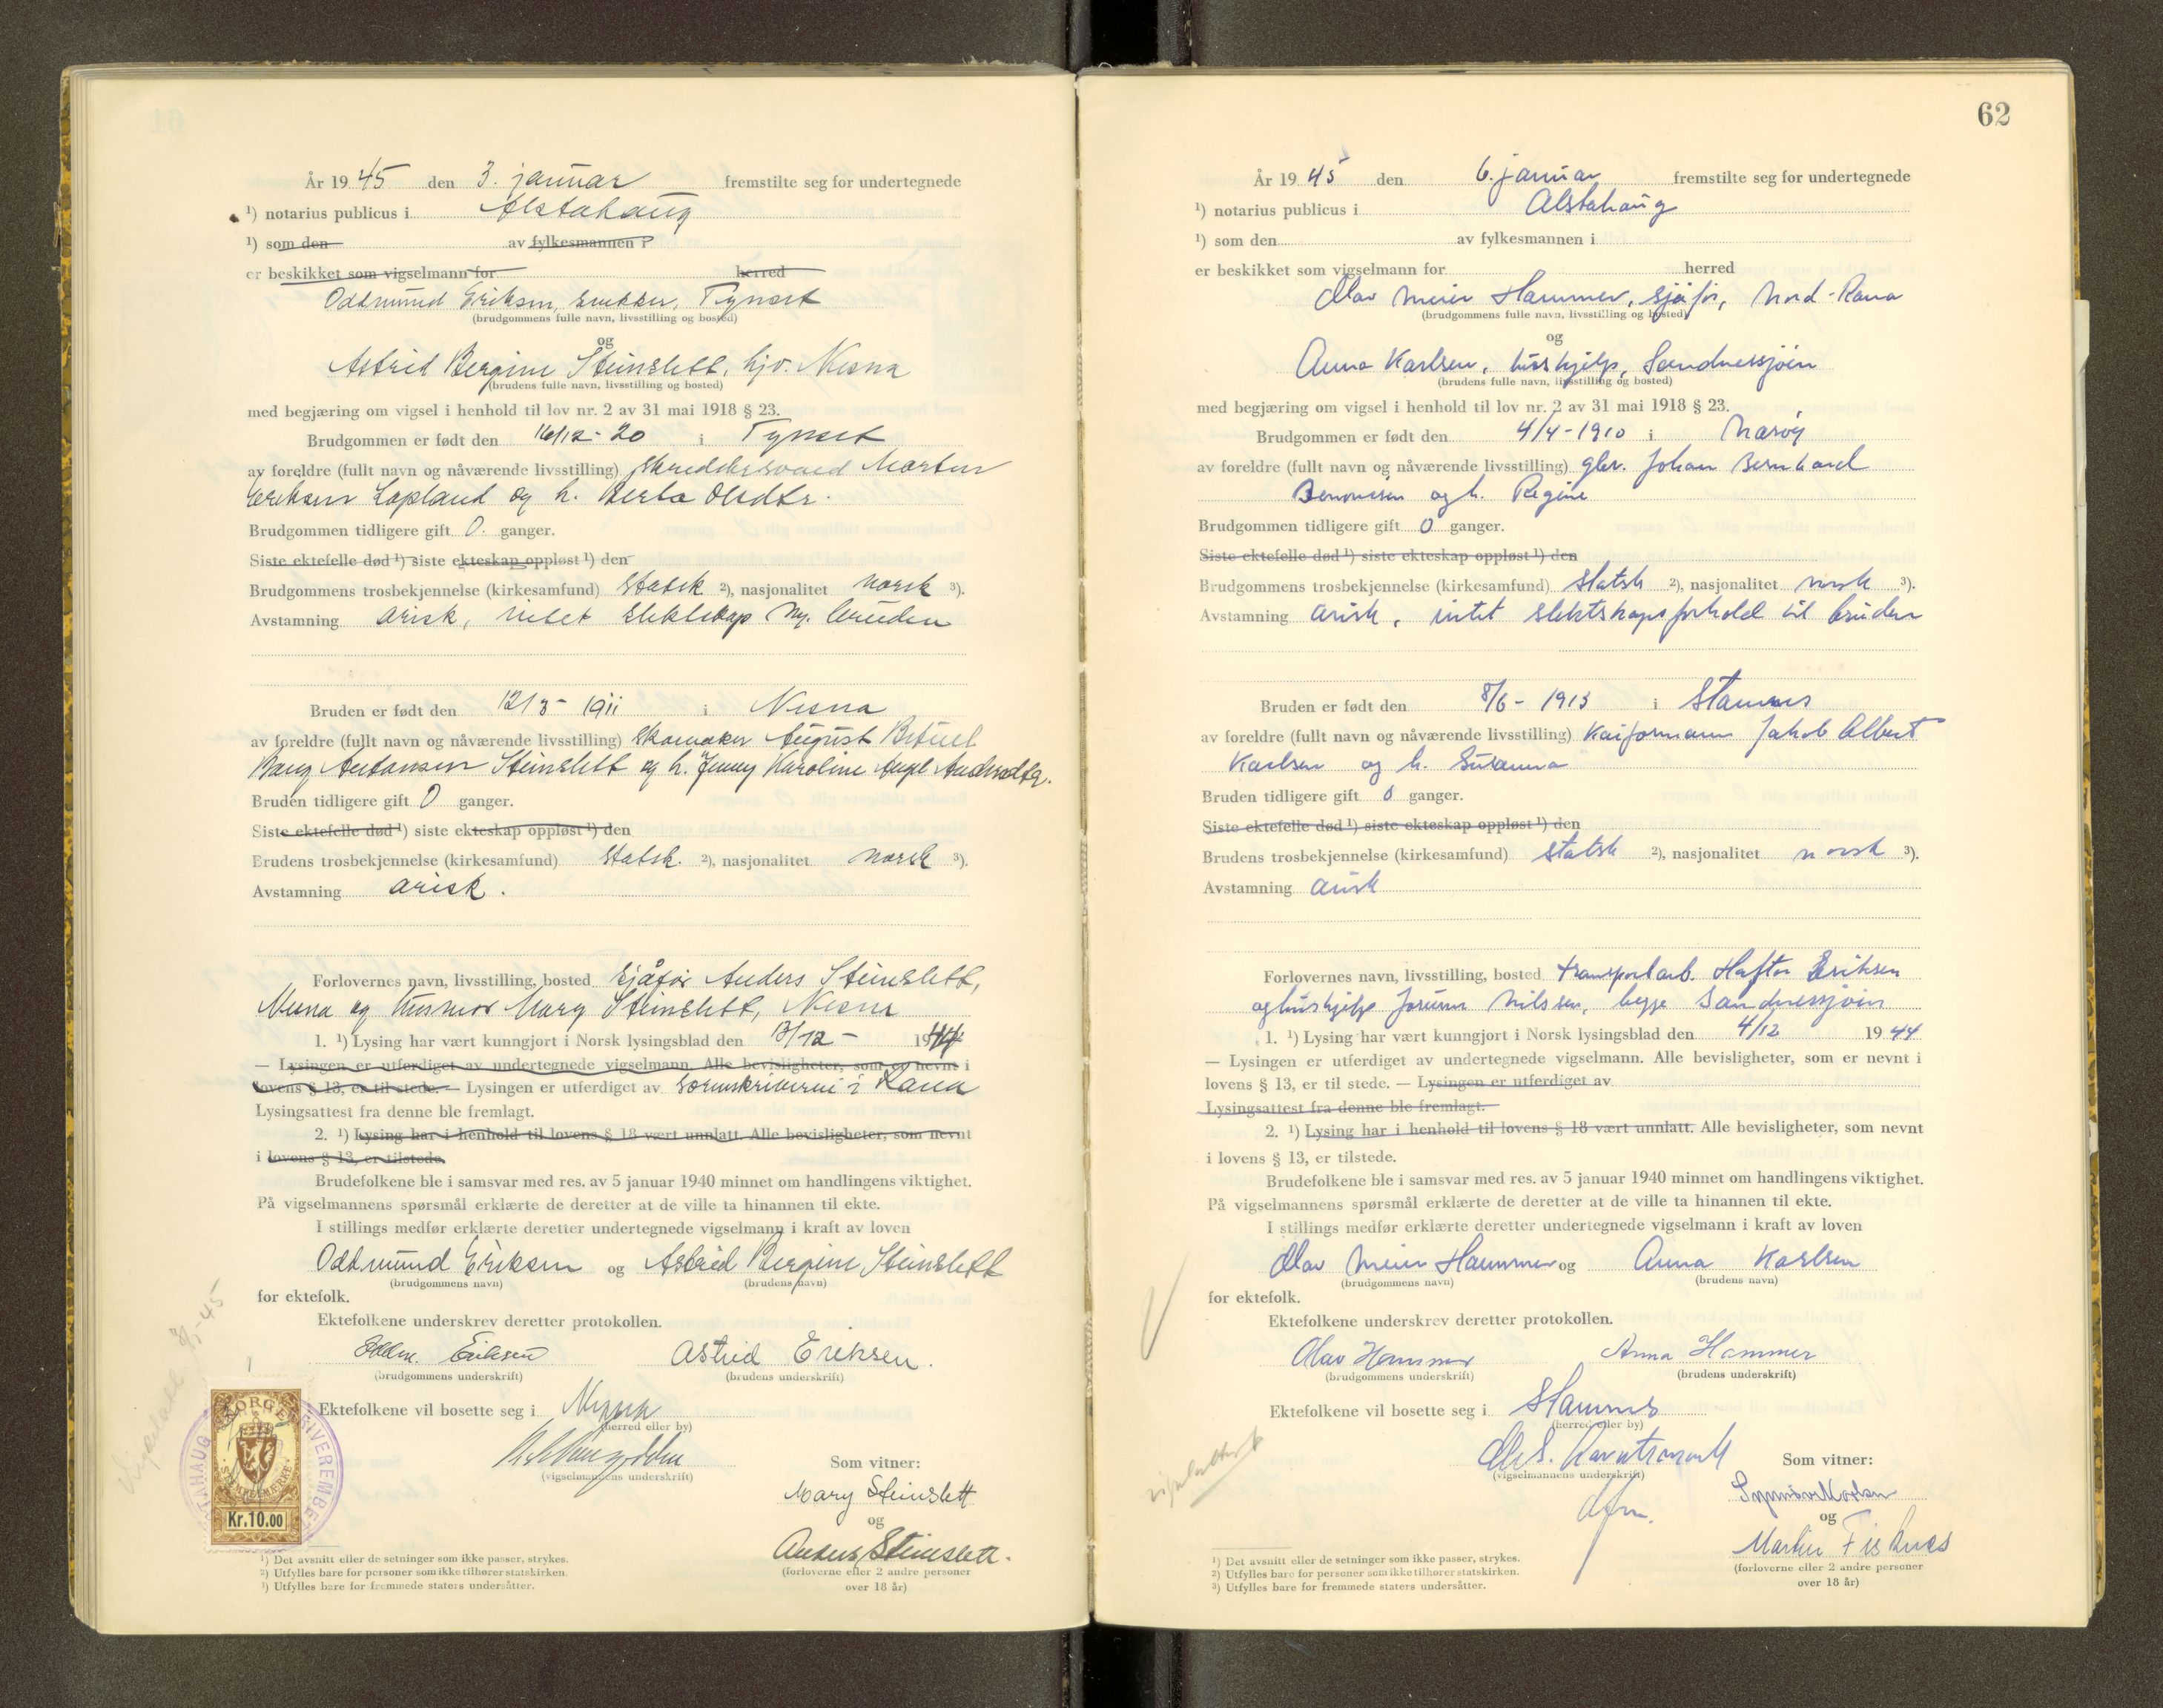 År 1945 den 3. januar fremstilte seg for undertegnede
¹) notarius publicus i Alstahaug
¹) som den av fylkesmannen i
er beskikket som vigselmann for herred
Oddmund Eriksen, snekker, Tynset
(brudgommens fulle navn, livsstilling og bosted)
og
Astrid Bergine Steinslett, hjv. Nesna
(brudens fulle navn, livsstilling og bosted)
med begjæring om vigsel i henhold til lov nr. 2 av 31 mai 1918 § 23.
Brudgommen er født den 16/12-20 i Tynset
av foreldre (fullt navn og nåværende livsstilling) skreddersvend Morten
Eriksen Lapland og h. Berta Olsdtr.
Brudgommen tidligere gift 0. ganger.
Siste ektefelle død ¹) siste ekteskap oppløst ¹) den
Brudgommens trosbekjennelse (kirkesamfund) Statsk ²), nasjonalitet norsk ³).
Avstamning arisk, intet slektskap m. bruden
Bruden er født den 12/3-1911 i Nesna
av foreldre (fullt navn og nåværende livsstilling) skomaker August Betuel
Bang Antonsen Steinslett og h. Jenny Karoline
Bruden tidligere gift 0 ganger.
Siste ektefelle død ¹) siste ekteskap oppløst ¹) den
Brudens trosbekjennelse (kirkesamfund) Statsk. ²), nasjonalitet norsk ³).
Avstamning arisk.
Forlovernes navn, livsstilling, bosted sjåfør Anders Steinslett,
Nesna og husmor Mary Steinslett, Nesna
1. ¹) Lysing har vært kunngjort i Norsk lysingsblad den /12 - 1944
— Lysingen er utferdiget av undertegnede vigselmann. Alle bevisligheter, som er nevnt i
lovens § 13, er til stede. — Lysingen er utferdiget av sorenskriveren i Rana
Lysingsattest fra denne ble fremlagt.
2. ¹) Lysing har i henhold til lovens § 18 vært unnlatt. Alle bevisligheter, som nevnt
i lovens § 13, er tilstede.
Brudefolkene ble i samsvar med res. av 5 januar 1940 minnet om handlingens viktighet.
På vigselmannens spørsmål erklærte de deretter at de ville ta hinannen til ekte.
I stillings medfør erklærte deretter undertegnede vigselmann i kraft av loven
Oddmund Eriksen og Astrid Bergine Steinslett
(brudgommens navn) (brudens navn)
for ektefolk.
Ektefolkene underskrev deretter protokollen.
Oddm. Eriksen Astrid Eriksen.
(brudgommens underskrift) (brudens underskrift)
Ektefolkene vil bosette seg i
(herred eller by)
(vigselmannens underskrift)
Som vitner:
Mary Steinslett
og
Anders Steinslett.
(forloverne eller 2 andre personer
over 18 år)
NORGE
STEMPELMERKE
Kr.10.00
¹) Det avsnitt eller de setninger som ikke passer, strykes.
²) Utfylles bare for personer som ikke tilhører statskirken.
³) Utfylles bare for fremmede staters undersåtter.
62
År 1945 den 6. januar fremstilte seg for undertegnede
¹) notarius publicus i Alstahaug
¹) som den av fylkesmannen i
er beskikket som vigselmann for herred
Olav Meier Hammer, sjåfør, Nord-Rana
(brudgommens fulle navn, livsstilling og bosted)
og
Anna Karlsen, hushjelp, Sandnessjøen
(brudens fulle navn, livsstilling og bosted)
med begjæring om vigsel i henhold til lov nr. 2 av 31 mai 1918 § 23.
Brudgommen er født den 4/4-1910 i Nærøy
av foreldre (fullt navn og nåværende livsstilling) gbr. Johan Bernhard
Benonisen og h. Regine
Brudgommen tidligere gift 0 ganger.
Siste ektefelle død ¹) siste ekteskap oppløst ¹) den
Brudgommens trosbekjennelse (kirkesamfund) statsk ²), nasjonalitet norsk ³).
Avstamning arisk, intet slektskapsforhold til bruden
Bruden er født den 8/6-1913 i Stamnes
av foreldre (fullt navn og nåværende livsstilling) Kaiformann Jakob Albert
Karlsen og h. Susanna
Bruden tidligere gift 0 ganger.
Siste ektefelle død ¹) siste ekteskap oppløst ¹) den
Brudens trosbekjennelse (kirkesamfund) statsk ²), nasjonalitet norsk ³).
Avstamning arisk
Forlovernes navn, livsstilling, bosted transportarb. Haftor Eriksen
og hushjelp Jorunn Nilssen, begge Sandnessjøen
1. ¹) Lysing har vært kunngjort i Norsk lysingsblad den 4/12 1944
— Lysingen er utferdiget av undertegnede vigselmann. Alle bevisligheter, som er nevnt i
lovens § 13, er til stede. — Lysingen er utferdiget av
Lysingsattest fra denne ble fremlagt.
2. ¹) Lysing har i henhold til lovens § 18 vært unnlatt. Alle bevisligheter, som nevnt
i lovens § 13, er tilstede.
Brudefolkene ble i samsvar med res. av 5 januar 1940 minnet om handlingens viktighet.
På vigselmannens spørsmål erklærte de deretter at de ville ta hinannen til ekte.
I stillings medfør erklærte deretter undertegnede vigselmann i kraft av loven
Olav Meier Hammer og Anna Karlsen
(brudgommens navn) (brudens navn)
for ektefolk.
Ektefolkene underskrev deretter protokollen.
Olav Hammer Anna Hammer
(brudgommens underskrift) (brudens underskrift)
Ektefolkene vil bosette seg i Stamnes
(herred eller by)
(vigselmannens underskrift)
Som vitner:
og
Martin Fisknes
(forloverne eller 2 andre personer
over 18 år)
¹) Det avsnitt eller de setninger som ikke passer, strykes.
²) Utfylles bare for personer som ikke tilhører statskirken.
³) Utfylles bare for fremmede staters undersåtter.